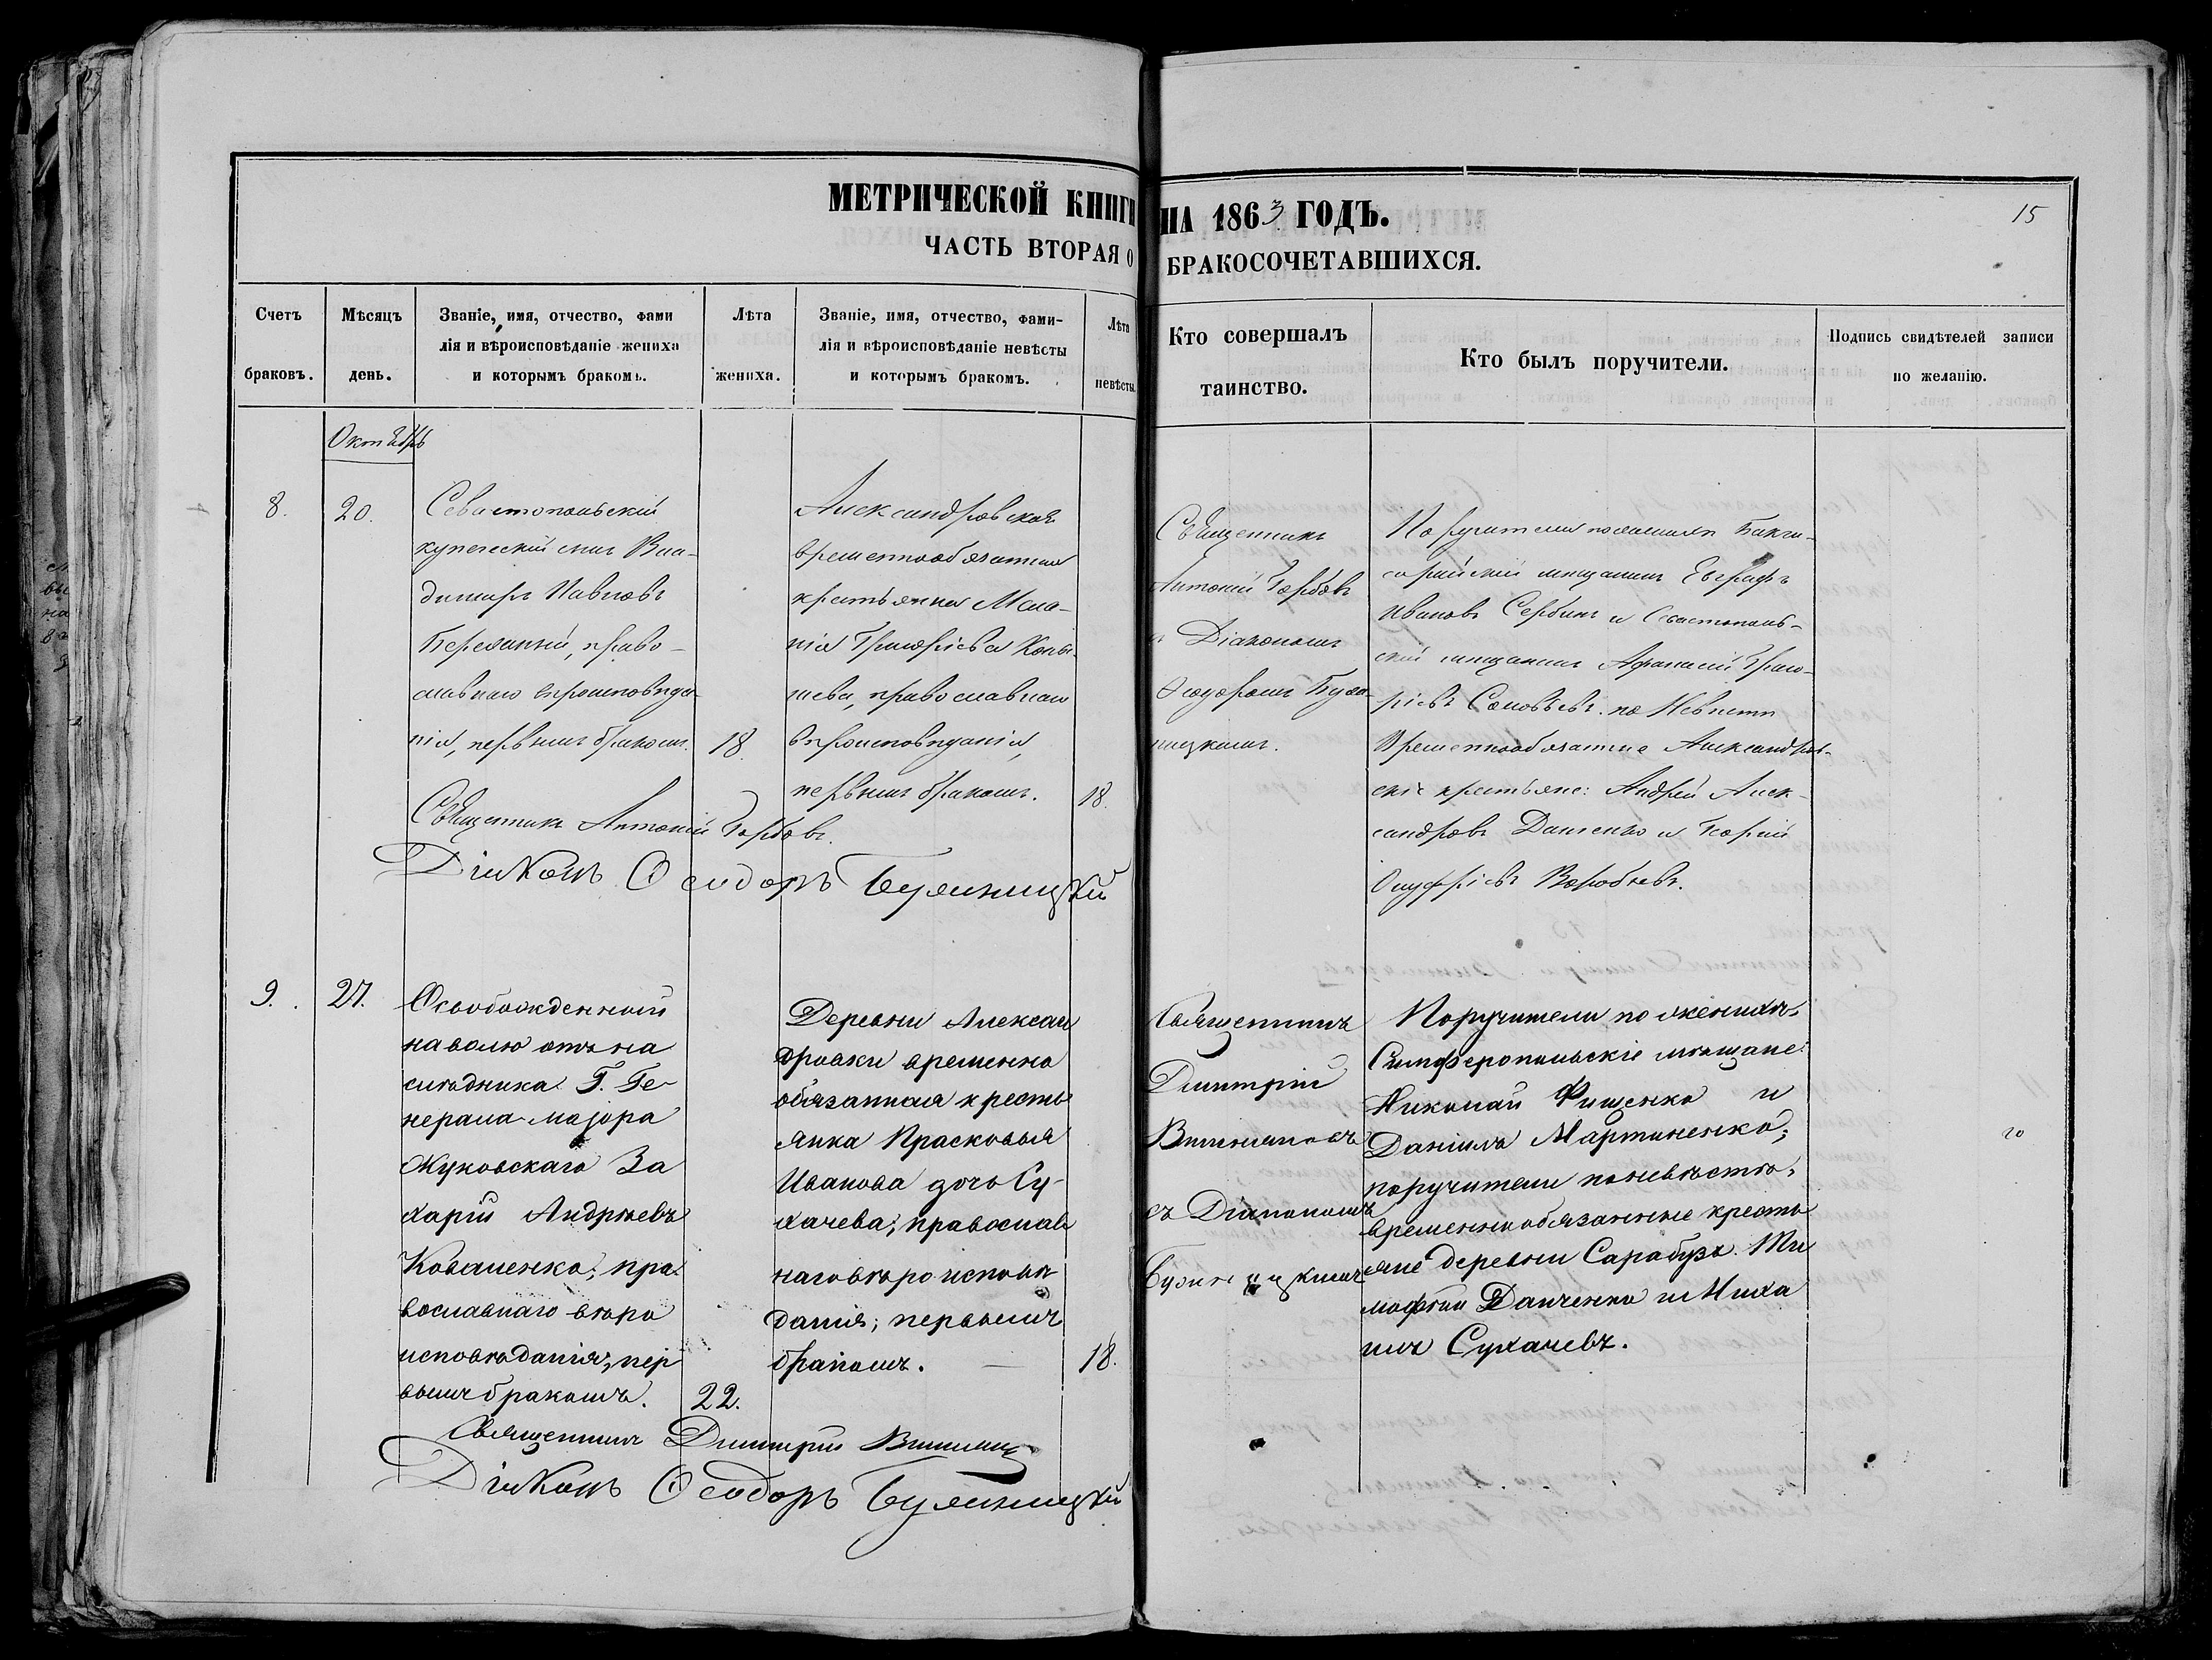 МЕТРИЧЕСКОЙ КНИГИ НА 1863 ГОДЪ.
15
ЧАСТЬ ВТОРАЯ О БРАКОСОЧЕТАВШИХСЯ.
Счетъ
браковъ.
Мѣсяцъ
день.
Званіе, имя, отчество, фами
лія и вѣроисповѣданіе жениха
и которымъ бракомъ.
Лѣта
жениха.
Званіе, имя, отчество, фами-
лія и вѣроисповѣданіе невѣсты
и которымъ бракомъ.
Лѣта
невѣсты.
Кто совершалъ
таинство.
Кто былъ поручители.
Подпись свидѣтелей записи
по желанію.
Октябрь
8.
20.
Севастопольскій
купеческій сынъ Вла-
диміръ Павловъ
православнаго вѣроисповѣда-
нія, первымъ бракомъ.
18.
Александровская
временнообязанная
крестьянка Мела-
нія Григоріева
православнаго
вѣроисповѣданія,
первымъ бракомъ.
18.
Священникъ
Антоній Горбовъ
съ Діакономъ
Ѳеодоромъ
Поручители по женихѣ Бахчи-
сарайскій мѣщанинъ Евграфъ
Ивановъ Сербинъ и Севастополь-
скій мѣщанинъ Афанасій Григо-
ріевъ Соловьевъ. по Невѣстѣ
Временнообязанные Александров-
скіе крестьяне: Андрей Алек-
сандровъ Даценко и Георгій
Онуфріевъ Воробьевъ.
Священникъ Антоній Горбовъ.
Діаконъ Ѳеодоръ
9.
27.
Освобожденный
наволю отъ на
слѣдника Г. Ге-
нерала-маіора
Жуковскаго За
харій Андрѣевъ
Коваленко, пра
вославнаго вѣро
исповѣданія, пер
вымъ бракомъ.
22.
Деревни Алексан
дровки временно
обязанная кресть
янка Прасковья
Иванова дочь Су-
хачева; православ
наго вѣро исповѣ
данія; первымъ
бракомъ. —
18.
Священникъ
Димитрій
съ Діакономъ
Поручители по женихѣ
Симферопольскіе мѣщане:
Николай Фищенко и
Даніилъ Мартиненко;
поручители по невѣстѣ,
временно обязанные кресть
яне деревни Сарабузъ. Ти
мофѣй Данченко и Миха
илъ Сухачевъ.
20
Священникъ Димитрій
Діаконъ Ѳеодоръ